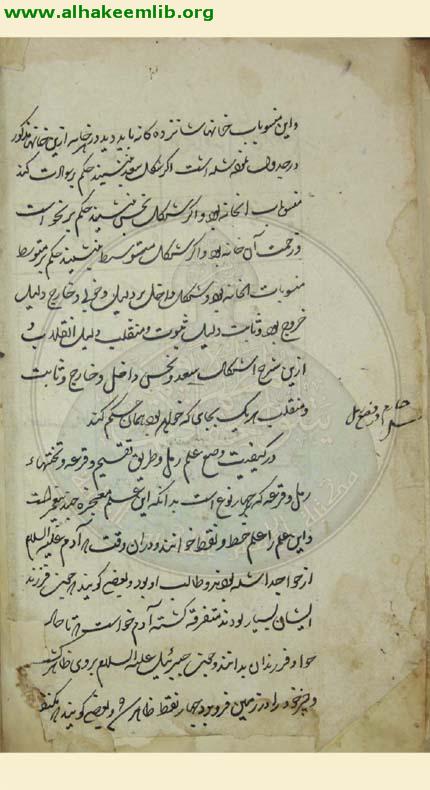 www.alhakeemlib.org
و این منسوبات خانهاست نزده کانه باید دید در هر خانه ازین خانها مذکور
در جدول شده است اگر شکل سعد نشیند حکم بر سعادت کند
منسوبات آنخانه بود و اگر شکل نحس نشیند حکم بر نحوست
آن خانه بود و اگر شکل متوسط نشیند حکم بر متوسط
منسوبات آنخانه بود و شکل داخل بر دلیل دخول و خارج دلیل
خروج بود و ثابت دلیل ثبوت و منقلب دلیل انقلاب و
ازین شرح اشکال سعد و نحس داخل و خارج و ثابت
و منقلب هر یک بجای که خواهد بود همان حکم کند
در کیفیت وضع علم رمل و طریق تقسیم و قرعه و تختهاء
رمل و قرعه که چهار نوع است بدانکه این علم معجزه چند پیغمبر است
و این علم را علم خط و نقط خوانند و در ان وقت که آدم علیه السلام
از حوا جدا شده بود و طالب او بود و بعضی کویند که چون فرزند
ایشان بسیار بودند متفرقه کشته آدم خواست که تا حال
حوا و فرزندان بداند و چون جبرئیل علیه السلام بروی ظاهر کشت
و پر خود را در زمین فرو برد چهار نقط ظاهر و بعضی کویند که